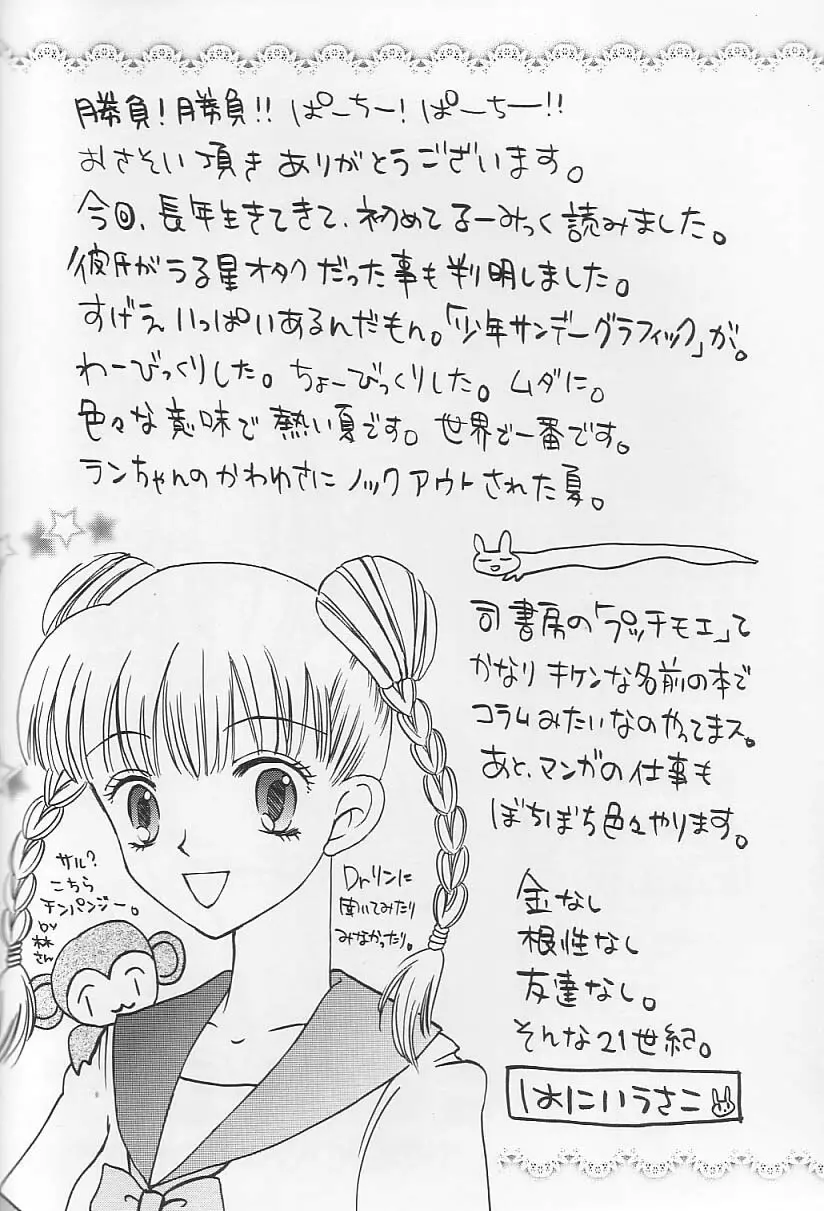 勝負！勝負！！ ぱーちー！ぱーちー！！
おさそい頂きありがとうございます。
今回、長年生きてきて、初めてるーみっく読みました。
彼氏がうる星オタクだった事も判明しました。
すげえいっぱいあるんだもん。「少年サンデーグラフィック」が。
わーびっくりした。ちょーびっくりした。ムダに。
色々な意味で熱い夏です。世界で一番です。
ランちゃんのかわゆさにノックアウトされた夏。
司書房の「プッチモエ」て
かなりキケンな名前の本で
コラムみたいなのやってまス。
あと、マンガの仕事も
ぼちぼち色々やります。
サル？
こちら
チンパンジー。
by
林さん
Dr.リンに
聞いてみたり
みなかったり。
金なし
根性なし
友達なし。
そんな21世紀。
はにいうさこ